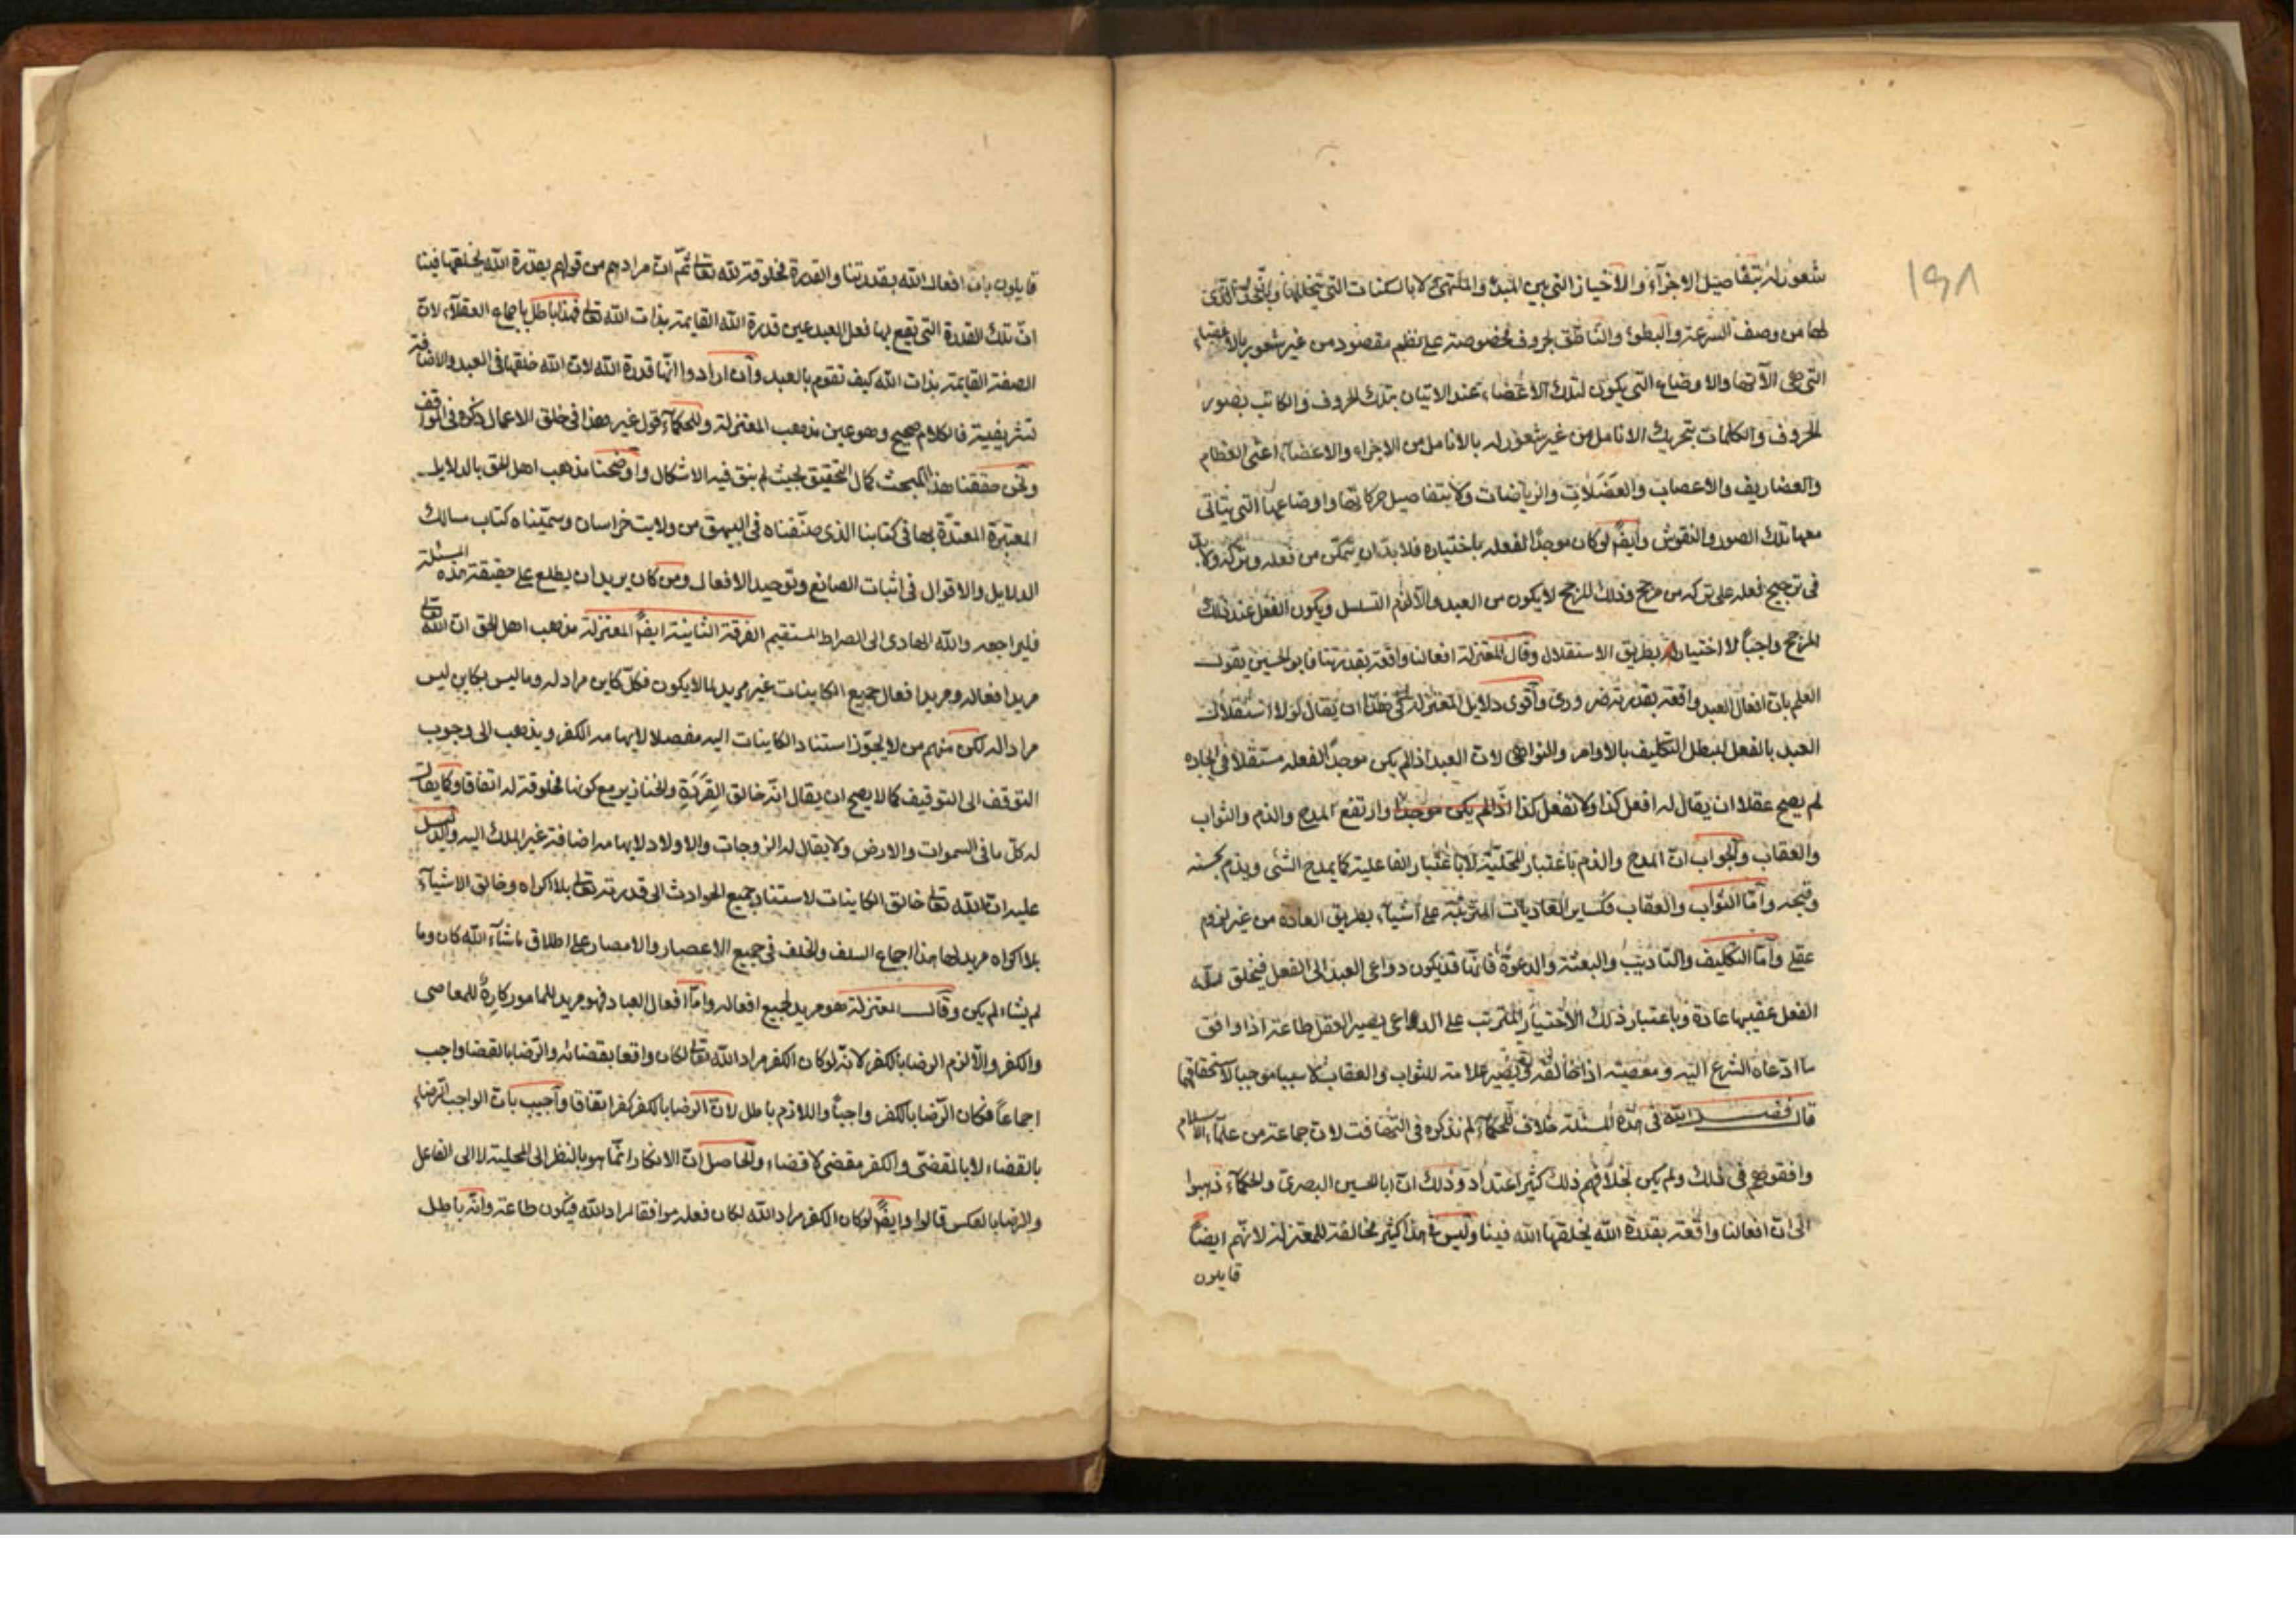 ١٩٨
شعور له بتفاصيل الاجزآء والاحياز التي بين المبدء والمنتهى ولا بالسكنات التي تتخللها ولا بالحد الذي
لها من وصف السرعة والبطوء والناطق بحروف مخصوصة على نظم مقصود من غير شعور بالاعضاء
التي هي الآتها والاوضاع التي يكون لتلك الاعضاء عند الاتيان بتلك الحروف والكاتب يصور
الحروف والكلمات بتحريك الانامل من غير شعور له بالانامل من الاجزاء والاعضآء اعنى العظام
والغضاريف والاعصاب والعضلات والرباطات ولا بتفاصيل حركاتها واوضاعها التي يتاتى
معها تلك الصور والنقوش وايضً لو كان موجدًا لفعله باختياره فلا بد ان يتمكن من فعله وتركه ولا بد
في ترجيح فعله على تركه من مرجح وذلك المرجح لا يكون من العبد والا لزم التسلسل ويكون الفعل عند ذلك
المرجح واجبًا لا اختيار له بطريق الاستقلال وقال المعتزلة افعالنا واقعة بقدرتنا فابو الحسين يقول
العلم بان افعال العبد واقعة بقدرته ضرورى واقوى دلايل المعتزلة في هذا ان يقال لولا استقلال
العبد بالفعل لبطل التكليف بالاوامر والنواهى لان العبد اذا لم يكن موجدًا لفعله مستقلا في ايجاده
لم يصح عقلا ان يقال له افعل كذا ولا تفعل كذا اذا لم يكن موجدا وارتفع المدح والذم والثواب
والعقاب والجواب ان المدح والذم باعتبار المحلية لا باعتبار الفاعلية كما يمدح الشئ ويذم بحسنه
وقبحه واما الثواب والعقاب فكساير العاديات المترتبة على اشيآء بطريق العادة من غير لزوم
عقلى واما التكليف والتاديب والبعثة والدعوة فانها قد يكون دواعى العبد الى الفعل فيخلق الله
الفعل عقيبها عادة وباعتبار ذلك الاختيار المترتب على الدواعى يصير الفعل طاعة اذا وافق
ما ادعاه الشرع اليه ومعصية اذا خالفه ويصير علامة للثواب والعقاب لا سببا موجبا لاستحقاقهما
قال فضل الله في هذه المسئلة خلاف للحكمآء لم نذكره في التهافت لان جماعة من علمآء الاسلام
وافقوهم في ذلك ولم يكن بخلافهم ذلك كثير اعتداد وذلك ان ابا الحسين البصرى والحكمآء ذهبوا
الى ان افعالنا واقعة بقدرة الله يخلقها الله فينا وليس في هذا كثير مخالفة للمعتزلة لانهم ايضاً
قايلون
قايلون بان افعال الله بقدرتنا والقدرة مخلوقة لله تعالى ثم ان مرادهم من قولهم بقدرة الله يخلقها فينا
ان تلك القدرة التي تقع بها فعل العبد عين قدرة الله القايمة بذات الله تعالى فهذا باطل باجماع العقلآء لان
الصفة القايمة بذات الله كيف تقوم بالعبد وان ارادوا انها قدرة الله لان الله خلقها في العبد والاضافة
تشريفية فالكلام صحيح وهو عين مذهب المعتزلة وللحكمآء قول غير هذا في خلق الاعمال ذكره في المواقف
ونحن حققنا هذا المبحث كمال التحقيق بحيث لم يبق فيه الاشكال واوضحنا مذهب اهل الحق بالدلايل
المعتبرة المعتدة بها في كتابنا الذى صنفناه في البيهق من ولايت خراسان وسميناه كتاب مسالك
الدلايل والاقوال في اثبات الصانع وتوحيد الافعال ومن كان يريد ان يطلع على حقيقة هذه المسئلة
فليراجعه والله الهادى الى الصراط المستقيم الفرقة الثانية ايضً المعتزلة مذهب اهل الحق ان الله تعالى
مريد افعاله ومريد افعال جميع الكاينات غير مريد لما لا يكون فكل كاين مراد له وما ليس بكاين ليس
مرادا له لكن منهم من لا يجوز استناد الكاينات اليه مفصلا لايهامه الكفر ويذهب الى وجوب
التوقف الى التوقيف كما لا يصح ان يقال انه خالق القِرَدَةِ والخنازير مع كونها مخلوقة له اتفاقا وكما يقال
له كل ما في السموات والارض ولا يقال له الزوجات والاولاد لايهامه اضافة غير الملك اليه والدليل
عليه ان الله تعالى خالق الكاينات لاستناد جميع الحوادث الى قدرته تعالى بلا اكراه وخالق الاشيآء
بلا اكراه مريد لها هذا اجماع السلف والخلف في جميع الاعصار والامصار على اطلاق ما شآء الله كان وما
لم يشاء لم يكن وقالت المعتزلة هو مريد لجميع افعاله واما افعال العباد فهو مريد للمامور كارهٌ للمعاصى
والكفر والا لزم الرضا بالكفر لانه لو كان الكفر مراد الله تعالى لكان واقعا بقضائه والرضا بالقضا واجب
اجماعًا فكان الرضا بالكفر واجبًا واللازم باطل لان الرضا بالكفر كفر اتفاقا واجيب بان الواجب الرضاء
بالقضاء لا بالمقضى والكفر مقضى لا قضاء والحاصل ان الانكار انما هو بالنظر الى المحلية لا الى الفاعل
والرضا بالعكس قالوا وايضً لو كان الكفر مراد الله لكان فعله موافقا لمراد الله فيكون طاعة وانه باطل